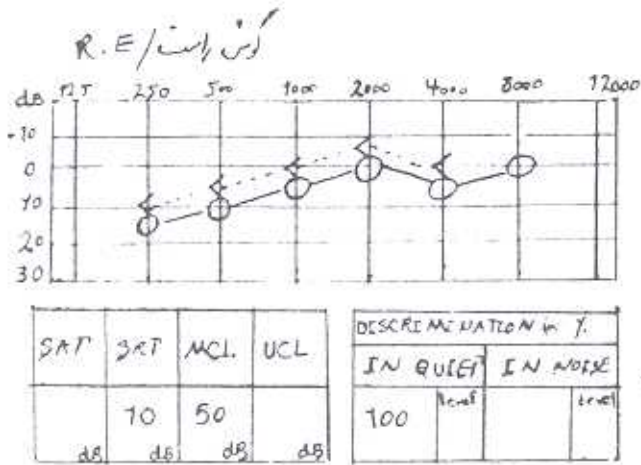 R.E / گوش راست
dB 125 250 500 1000 2000 4000 8000 12000
-10
0
10
20
30
SAT SRT MCL UCL
10 50
dB dB dB dB
DISCRIMINATION in %
IN QUIET IN NOISE
100 level level